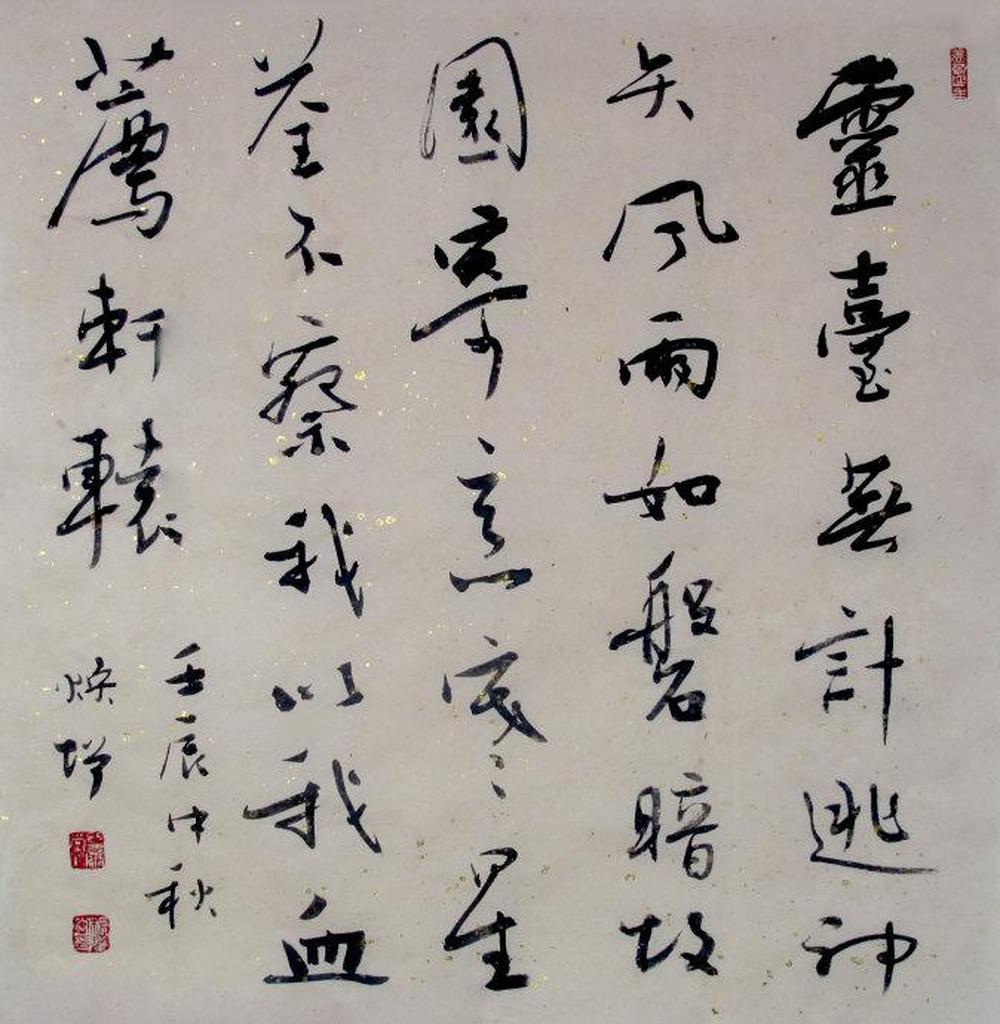 靈臺無計逃神
矢風雨如磐暗故
園寄意寒星
荃不察我以我血
薦軒轅
壬辰中秋
焕